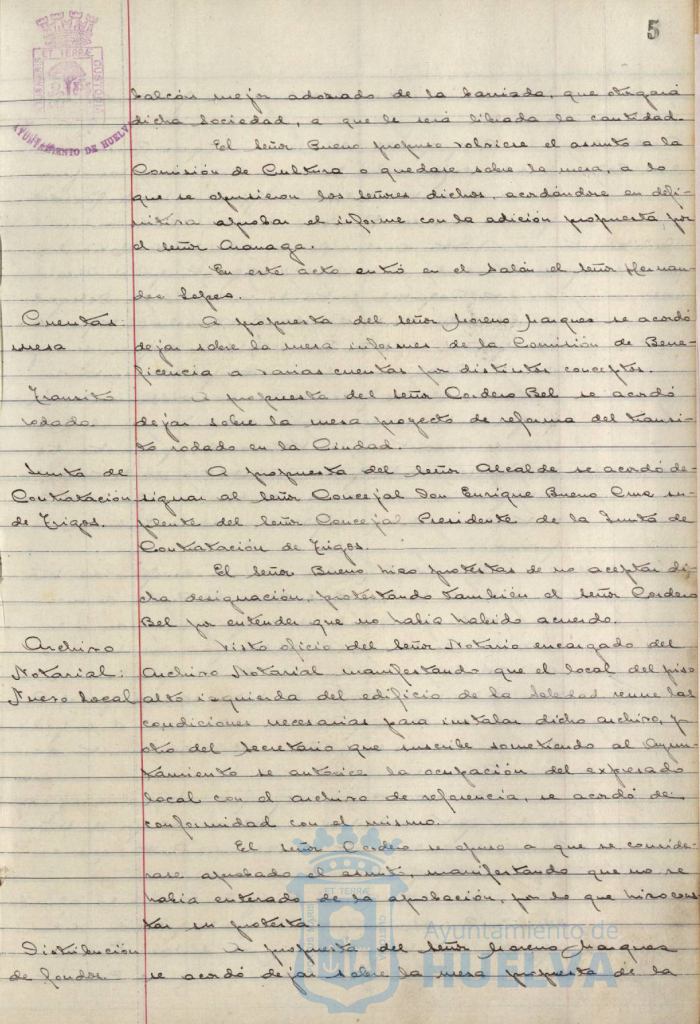 5
AYUNTAMIENTO DE HUELVA
balcón mejor adornado de la barriada, que otorgará
dicha Sociedad, a que le será librada la cantidad.
El Señor Bueno propuso volviese el asunto a la
Comisión de Cultura o quedase sobre la mesa, a lo
que se opusieron los Señores dichos, acordándose en defi-
nitiva aprobar el informe con la adición propuesta por
el Señor Aranaga.
En este acto entró en el Salón el Señor Hernan-
dez Lopez.
Cuentas:
mesa
A propuesta del Señor Moreno Marquez se acordó
dejar sobre la mesa informes de la Comisión de Bene-
ficencia a varias cuentas por distintos conceptos.
Transito
rodado.
A propuesta del Señor Cordero Bel se acordó
dejar sobre la mesa proyecto de reforma del transi-
to rodado en la Ciudad.
Junta de
Contratación
de Trigos.
A propuesta del Señor Alcalde se acordó de-
signar al Señor Concejal Don Enrique Bueno Cruz su-
plente del Señor Concejal Presidente de la Junta de
Contratación de Trigos.
El Señor Bueno hizo protestas de no aceptar di-
cha designación, protestando también el señor Cordero
Bel por entender que no había habido acuerdo.
Archivo
Notarial:
Nuevo Local
Visto oficio del Señor Notario encargado del
Archivo Notarial manifestando que el local del piso
alto izquierda del edificio de la Soledad reune las
condiciones necesarias para instalar dicho archivo, y
otro del Secretario que suscribe sometiendo al Ayun-
tamiento se autorice la ocupación del expresado
local con el archivo de referencia, se acordó de
conformidad con el mismo.
El Señor Cordero se opuso a que se conside-
rase aprobado el asunto, manifestando que no se
había enterado de la aprobación, por lo que hizo cons-
tar su protesta.
Distribución
de fondos.
A propuesta del Señor Moreno Marquez
se acordó dejar sobre la mesa propuesta de la
Ayuntamiento de
HUELVA